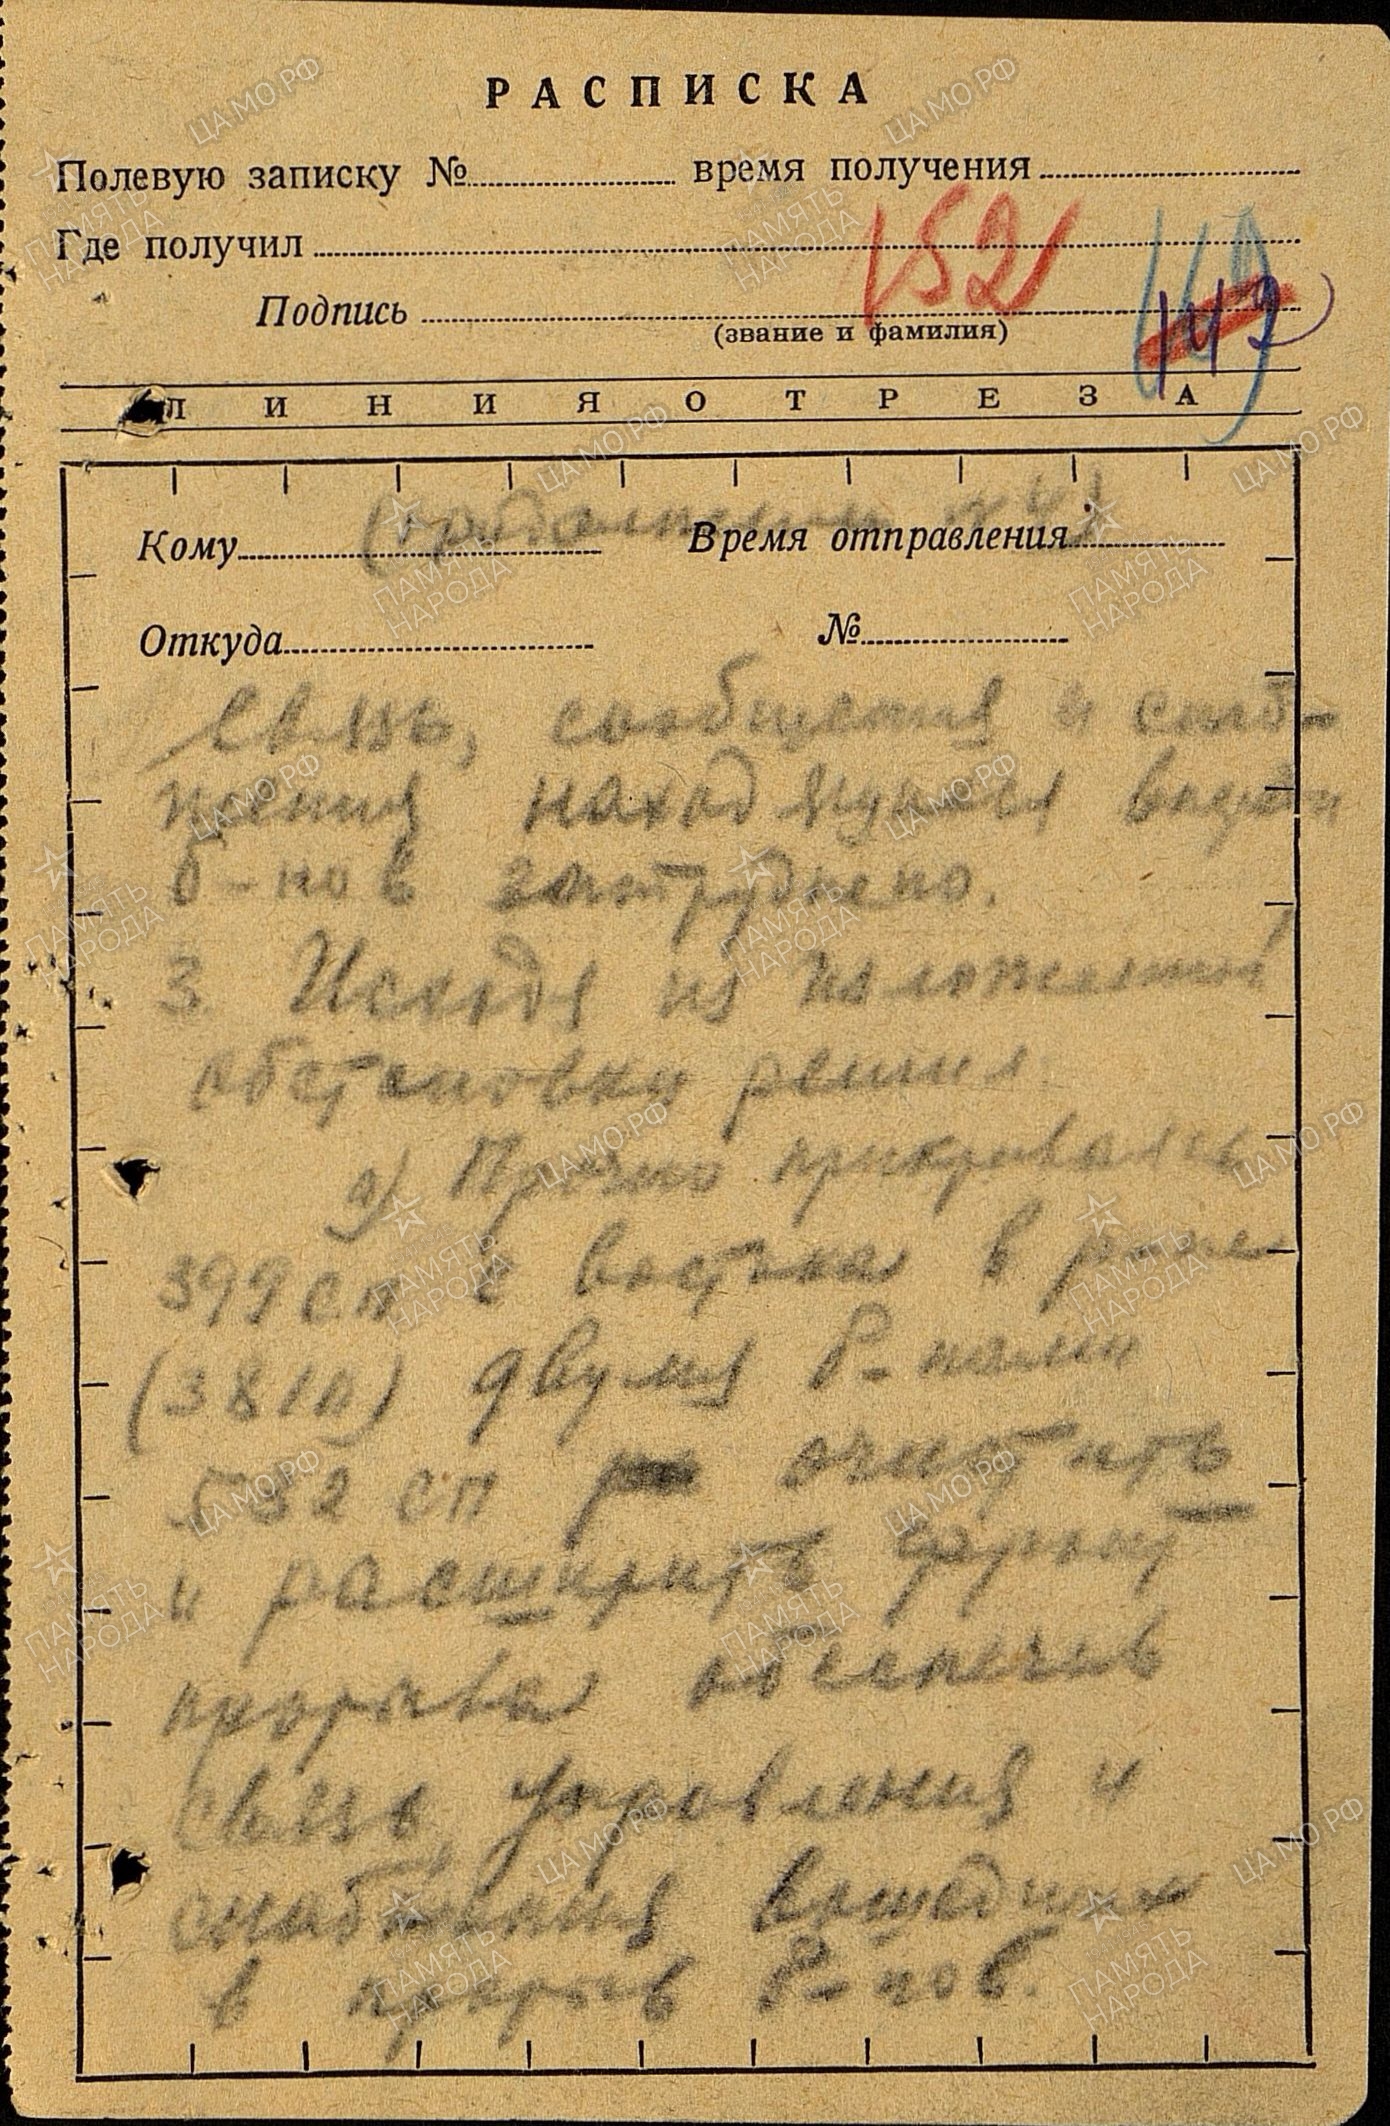 РАСПИСКА
Полевую записку № время получения
Где получил
152
149
147
Подпись
(звание и фамилия)
ЛИНИЯ ОТРЕЗА
(продолжение №4)
Кому Время отправления
Откуда №
Связь, сообщения и снаб-
жения находящихся
б-нов затруднено.
3. Исходя из
обстановки решил
а) Прочно прикрываясь
399 сп с востока в р-не
двумя б-нами
532 сп очистить
и расширить фронт
прорыва обеспечив
связь, управления и
снабжения вошедших
в прорыв б-нов.